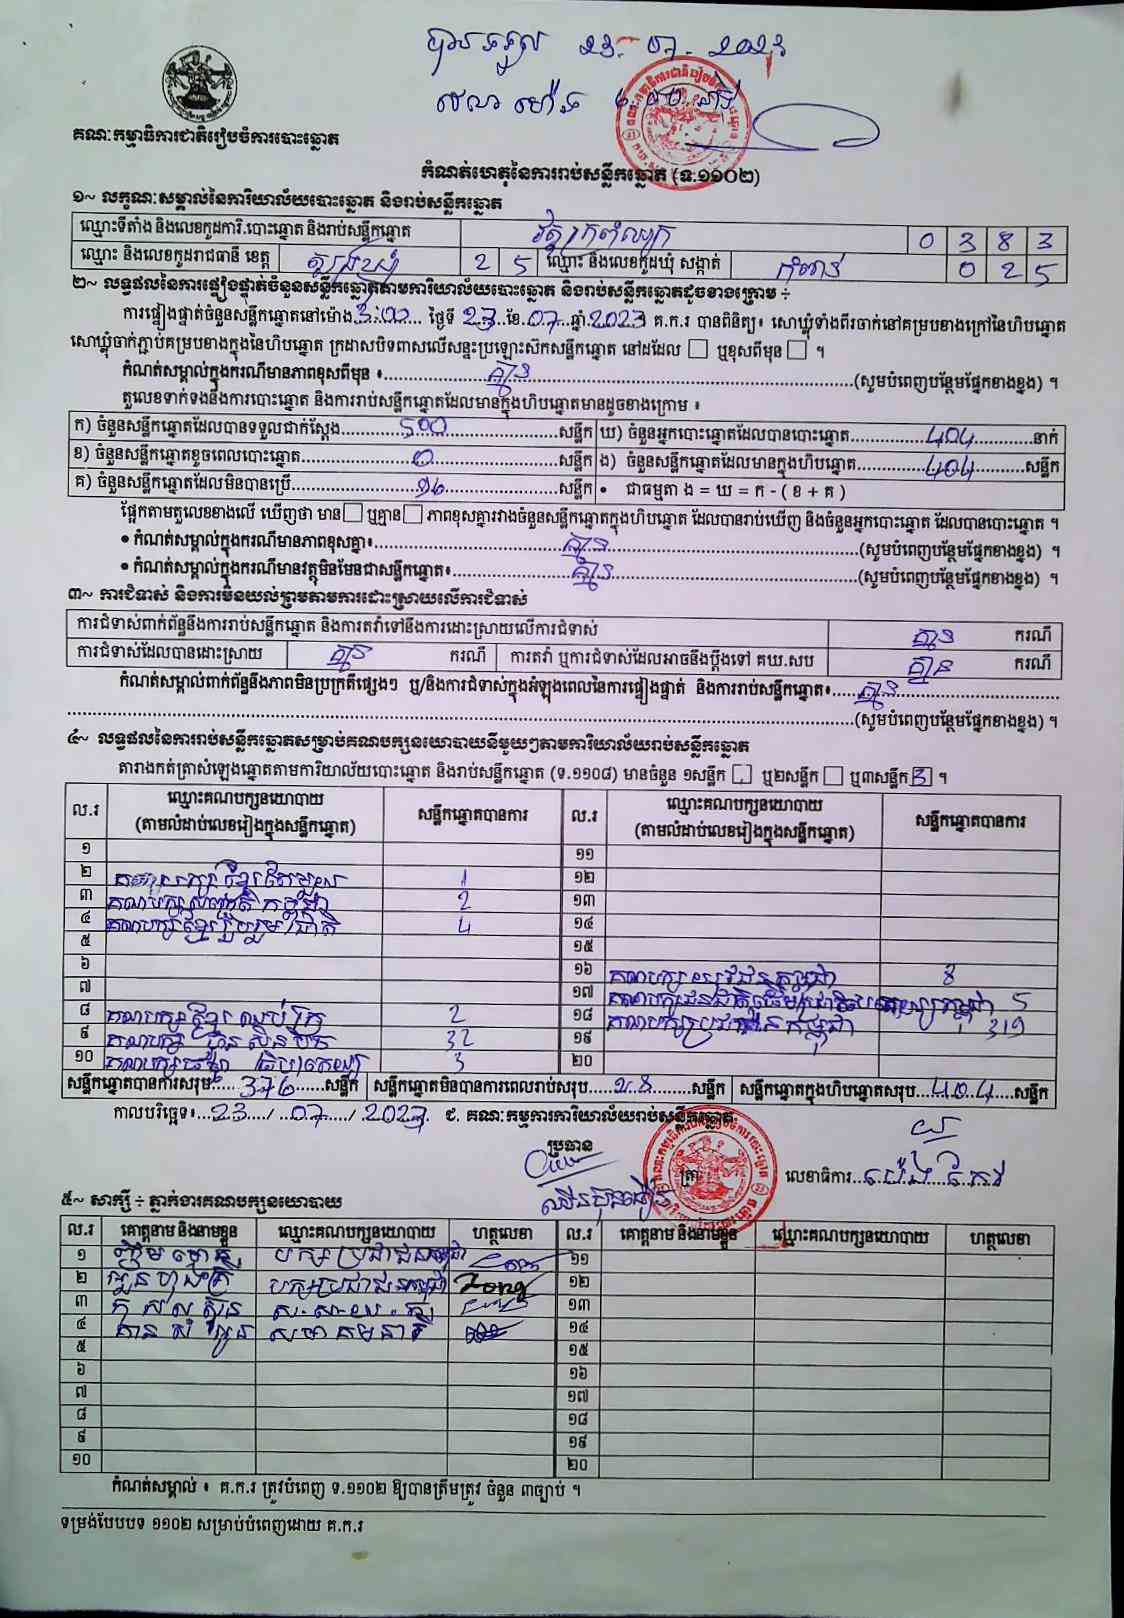 បានទទួល 23. 07. 2023
គណៈកម្មាធិការជាតិរៀបចំការបោះឆ្នោត
កំណត់ហេតុនៃការរាប់សន្លឹកឆ្នោត (ទ.១១០២)
១~ លក្ខណៈសម្គាល់នៃការិយាល័យបោះឆ្នោត និងរាប់សន្លឹកឆ្នោត
ឈ្មោះទីតាំង និងលេខកូដការិ.បោះឆ្នោត និងរាប់សន្លឹកឆ្នោត 0 3 8 3
ឈ្មោះ និងលេខកូដរាជធានី ខេត្ត ត្បូងឃ្មុំ 2 5 ឈ្មោះ និងលេខកូដឃុំ សង្កាត់ 0 2 5
២~ លទ្ធផលនៃការផ្ទៀងផ្ទាត់ចំនួនសន្លឹកឆ្នោតតាមការិយាល័យបោះឆ្នោត និងរាប់សន្លឹកឆ្នោតដូចខាងក្រោម ÷
ការផ្ទៀងផ្ទាត់ចំនួនសន្លឹកឆ្នោតនៅម៉ោង 3:00 ថ្ងៃទី 23 ខែ 07 ឆ្នាំ 2023 គ.ក.រ បានពិនិត្យ៖ សោឃ្លុំទាំងពីរចាក់នៅគម្របខាងក្រៅនៃហិបឆ្នោត
សោឃ្លុំចាក់ភ្ជាប់គម្របខាងក្នុងនៃហិបឆ្នោត ក្រដាសបិទពាសលើសន្ទះប្រឡោះស៊កសន្លឹកឆ្នោត នៅដដែល ☐ ឬខុសពីមុន ☐ ។
កំណត់សម្គាល់ក្នុងករណីមានភាពខុសពីមុន ៖ គ្មាន (សូមបំពេញបន្ថែមផ្នែកខាងខ្នង) ។
តួលេខទាក់ទងនឹងការបោះឆ្នោត និងការរាប់សន្លឹកឆ្នោតដែលមានក្នុងហិបឆ្នោតមានដូចខាងក្រោម ៖
ក) ចំនួនសន្លឹកឆ្នោតដែលបានទទួលជាក់ស្តែង 500 សន្លឹក ឃ) ចំនួនអ្នកបោះឆ្នោតដែលបានបោះឆ្នោត 404 នាក់
ខ) ចំនួនសន្លឹកឆ្នោតខូចពេលបោះឆ្នោត 0 សន្លឹក ង) ចំនួនសន្លឹកឆ្នោតដែលមានក្នុងហិបឆ្នោត 404 សន្លឹក
គ) ចំនួនសន្លឹកឆ្នោតដែលមិនបានប្រើ 96 សន្លឹក • ជាធម្មតា ង = ឃ = ក - ( ខ + គ )
ផ្អែកតាមតួលេខខាងលើ ឃើញថា មាន ☐ ឬគ្មាន ☐ ភាពខុសគ្នារវាងចំនួនសន្លឹកឆ្នោតក្នុងហិបឆ្នោត ដែលបានរាប់ឃើញ និងចំនួនអ្នកបោះឆ្នោត ដែលបានបោះឆ្នោត ។
• កំណត់សម្គាល់ក្នុងករណីមានភាពខុសគ្នា៖ គ្មាន (សូមបំពេញបន្ថែមផ្នែកខាងខ្នង) ។
• កំណត់សម្គាល់ក្នុងករណីមានវត្ថុមិនមែនជាសន្លឹកឆ្នោត៖ គ្មាន (សូមបំពេញបន្ថែមផ្នែកខាងខ្នង) ។
៣~ ការជំទាស់ និងការមិនយល់ព្រមតាមការដោះស្រាយលើការជំទាស់
ការជំទាស់ពាក់ព័ន្ធនឹងការរាប់សន្លឹកឆ្នោត និងការតវ៉ាទៅនឹងការដោះស្រាយលើការជំទាស់ គ្មាន ករណី
ការជំទាស់ដែលបានដោះស្រាយ គ្មាន ករណី ការតវ៉ា ឬការជំទាស់ដែលអាចនឹងប្តឹងទៅ គឃ.សប គ្មាន ករណី
កំណត់សម្គាល់ពាក់ព័ន្ធនឹងភាពមិនប្រក្រតីផ្សេងៗ ឬ/និងការជំទាស់ក្នុងអំឡុងពេលនៃការផ្ទៀងផ្ទាត់ និងការរាប់សន្លឹកឆ្នោត៖ គ្មាន
(សូមបំពេញបន្ថែមផ្នែកខាងខ្នង) ។
៤~ លទ្ធផលនៃការរាប់សន្លឹកឆ្នោតសម្រាប់គណបក្សនយោបាយនីមួយៗតាមការិយាល័យរាប់សន្លឹកឆ្នោត
តារាងកត់ត្រាសំឡេងឆ្នោតតាមការិយាល័យបោះឆ្នោត និងរាប់សន្លឹកឆ្នោត (ទ.១១០៨) មានចំនួន ១សន្លឹក ☐ ឬ២សន្លឹក ☐ ឬ៣សន្លឹក 3 ។
ល.រ ឈ្មោះគណបក្សនយោបាយ (តាមលំដាប់លេខរៀងក្នុងសន្លឹកឆ្នោត) សន្លឹកឆ្នោតបានការ ល.រ ឈ្មោះគណបក្សនយោបាយ (តាមលំដាប់លេខរៀងក្នុងសន្លឹកឆ្នោត) សន្លឹកឆ្នោតបានការ
១ ១១
២ គណបក្សខ្មែរតែមួយ 1 ១២
៣ គណបក្ស 2 ១៣
៤ គណបក្សខ្មែររួបរួមជាតិ 4 ១៤
៥ ១៥
៦ ១៦ គណបក្សយុវជនកម្ពុជា 8
៧ ១៧ 5
៨ គណបក្សខ្មែរឈប់ក្រ 2 ១៨ គណបក្សប្រជាជនកម្ពុជា 319
៩ គណបក្ស ហ៊្វុនស៊ិនប៉ិច 32 ១៩
១០ 3 ២០
សន្លឹកឆ្នោតបានការសរុប 376 សន្លឹក សន្លឹកឆ្នោតមិនបានការពេលរាប់សរុប 28 សន្លឹក សន្លឹកឆ្នោតក្នុងហិបឆ្នោតសរុប 404 សន្លឹក
កាលបរិច្ឆេទ៖ 23 / 07 / 2023 ជ. គណៈកម្មការការិយាល័យរាប់សន្លឹកឆ្នោត
ប្រធាន
ត្រា លេខាធិការ
៥~ សាក្សី ÷ ភ្នាក់ងារគណបក្សនយោបាយ
ល.រ គោត្តនាម និងនាមខ្លួន ឈ្មោះគណបក្សនយោបាយ ហត្ថលេខា ល.រ គោត្តនាម និងនាមខ្លួន ឈ្មោះគណបក្សនយោបាយ ហត្ថលេខា
១ បក្សប្រជាជនកម្ពុជា ១១
២ បក្សប្រជាជនកម្ពុជា ១២
៣ ១៣
៤ សមាគមនារី ១៤
៥ ១៥
៦ ១៦
៧ ១៧
៨ ១៨
៩ ១៩
១០ ២០
កំណត់សម្គាល់ ៖ គ.ក.រ ត្រូវបំពេញ ទ.១១០២ ឱ្យបានត្រឹមត្រូវ ចំនួន ៣ច្បាប់ ។
ទម្រង់បែបបទ ១១០២ សម្រាប់បំពេញដោយ គ.ក.រ